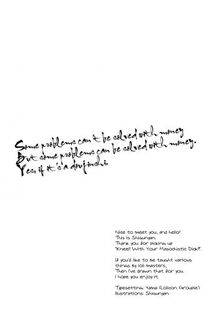 Some problems can't be solved with money
But some problems can be solved with money.
Yes, if it's a doujinshi.
Nice to meet you, and hello!
This is Shiawngen.
Thank you for picking up
"Kneel With Your Masochistic Dick!".
If you'd like to be taught various
things by loli masters,
Then I've drawn that for you.
I hope you enjoy it.
Typesetting:
Illustrations: Shiawngen